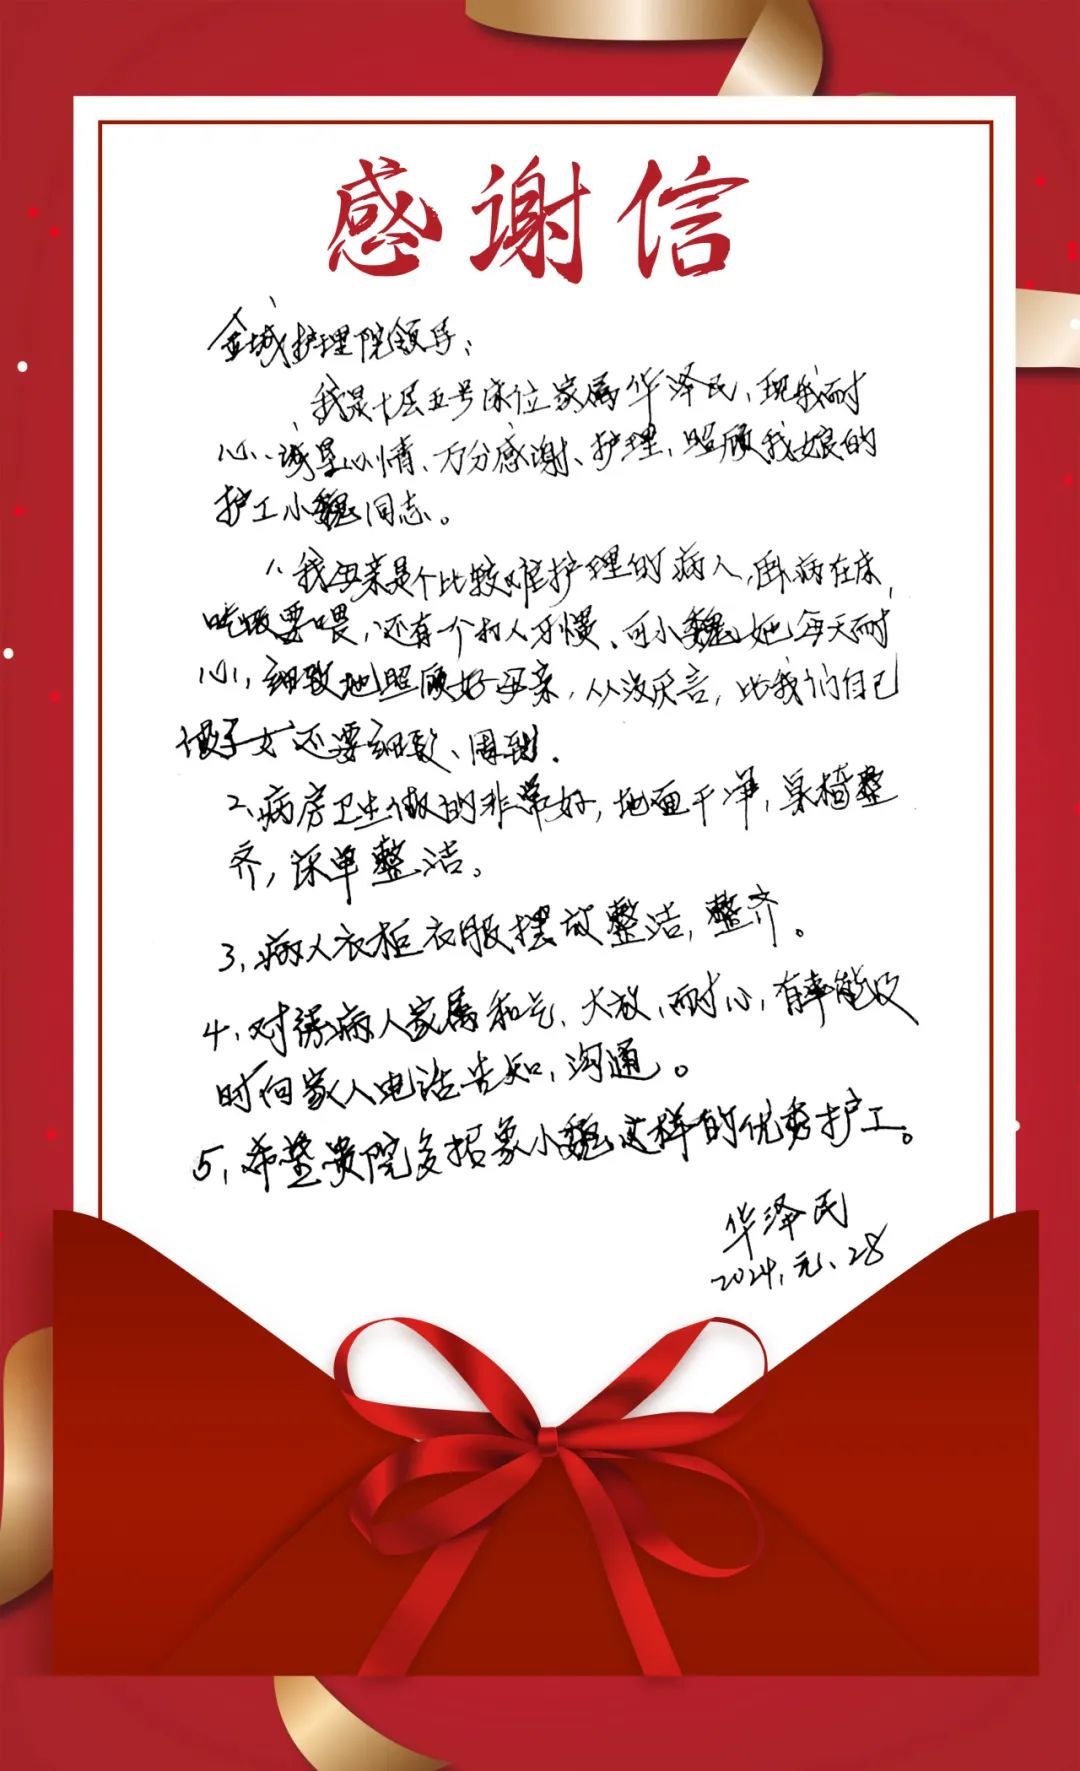 感谢信
金城护理院领导：
我是七层五号床位家属华泽民，现我耐
心、诚恳心情、万分感谢、护理、照顾我娘的
护工小魏同志。
1、我母亲是个比较难护理的病人，卧病在床，
吃饭要喂，还有个打人习惯、可小魏她每天耐
心，细致地照顾好母亲，从没厌言，比我们自己
做子女还要细致、周到．
2、病房卫生做的非常好，地面干净，桌椅整
齐，床单整洁。
3，病人衣柜衣服摆放整洁，整齐。
4，对待病人家属和气、大放，耐心，有事能及
时向家人电话告知，沟通。
5，希望贵院多招象小魏这样的优秀护工。
华泽民
2024，元、28